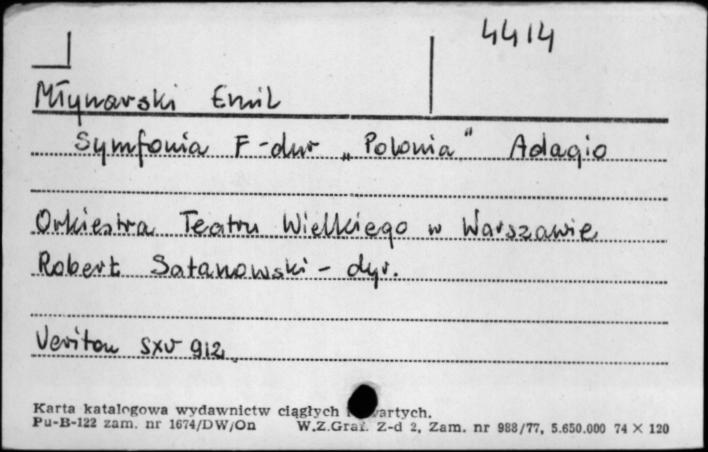 4414
Młynarski Emil
Symfonia F-dur „Polonia" Adagio
Orkiestra Teatru Wielkiego w Warszawie
Robert Satanowski - dyr.
Veriton SXV 912
Karta katalogowa wydawnictw ciągłych
Pu-B-122 zam. nr 1674/DW/On W.Z.Graf. Z-d 2, Zam. nr 988/77, 5.650.000 74 × 120